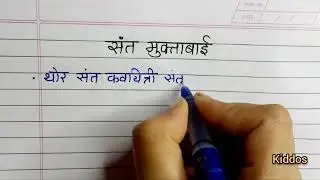 संत मुक्ताबाई
· थोर संत कवयित्री संत
Kiddos